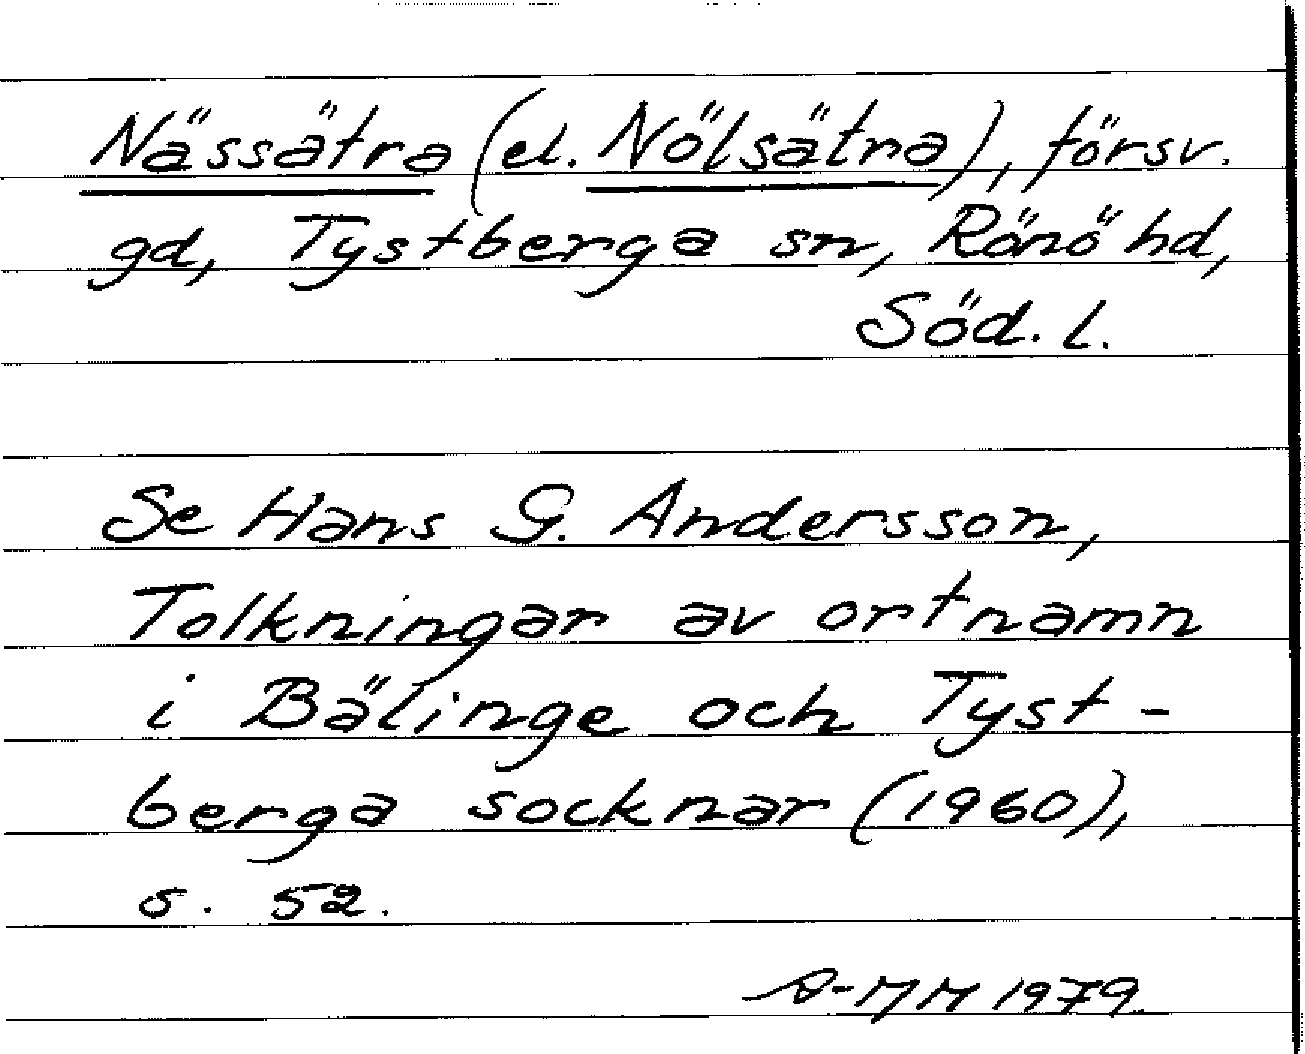 Nässätra (el. Nölsätra), försv.
gd, Tystberga sn, Rönö hd,
Söd. l.
Se Hans G. Andersson,
Tolkningar av ortnamn
i Bälinge och Tyst-
berga socknar (1960),
s. 52.
A-MM 1979.